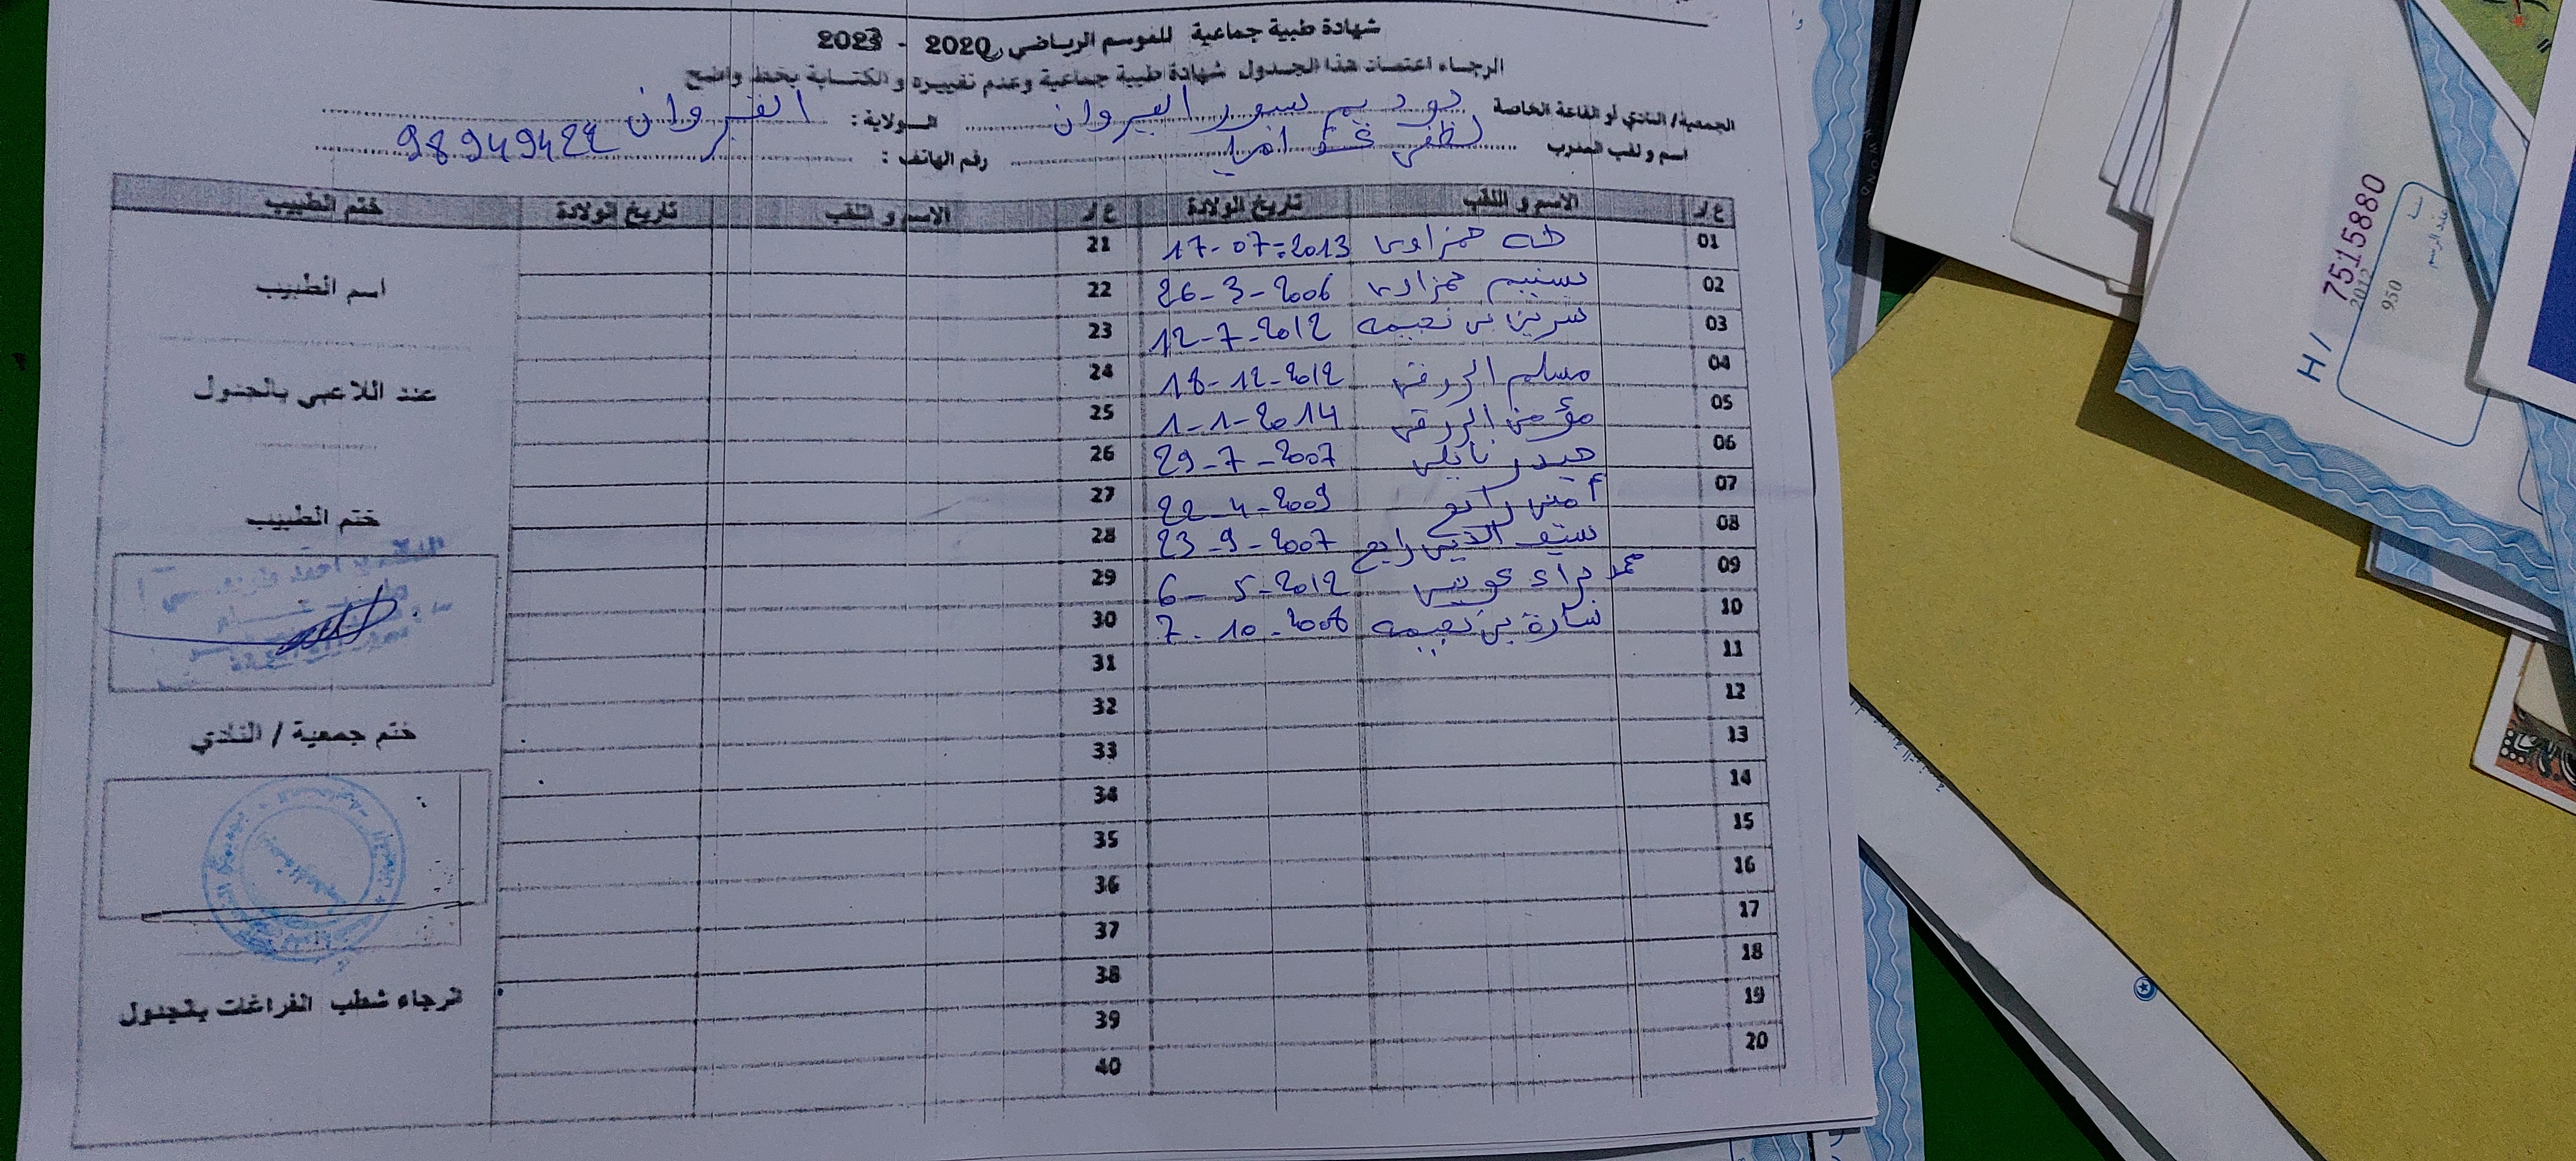 شهادة طبية جماعية للموسم الرياضي 2020 - 2023
الرجاء اعتماد هذا الجدول شهادة طبية جماعية وعدم تغييره والكتابة بخط واضح
الجمعية/ النادي أو القاعة الخاصة سور القيروان الولاية : القيروان
اسم و لقب المدرب لطفي رقم الهاتف : 98949422
ع/ر الاسم و اللقب تاريخ الولادة ع/ر الاسم و اللقب تاريخ الولادة ختم الطبيب
01 طه حمزاوي 17-07-2013 21
02 تسنيم حمزاوي 26-3-2006 22
اسم الطبيب
03 نسرين بن نعيمه 12-7-2012 23
04 مسلم الزرقي 18-12-2012 24
عند اللاعبي بالجدول
05 مؤمن الزرقي 1-1-2014 25
06 حيدر نايلي 29-7-2007 26
07 أمين رابح 22-4-2009 27
ختم الطبيب
08 سيف الدين رابح 23-9-2007 28
09 محمد براء عويني 6-5-2012 29
10 سارة بن نعيمه 7-10-2008 30
11 31
12 32
13 33
ختم جمعية / النادي
14 34
15 35
16 36
17 37
18 38
19 39
الرجاء شطب الفراغات بالجدول
20 40
H/ 7515880
2012
950